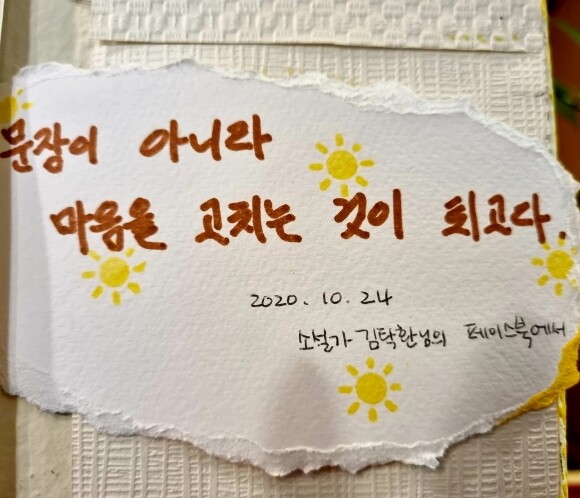 문장이 아니라
마음을 고치는 것이 최고다.
2020. 10. 24
소설가 김탁환님의 페이스북에서